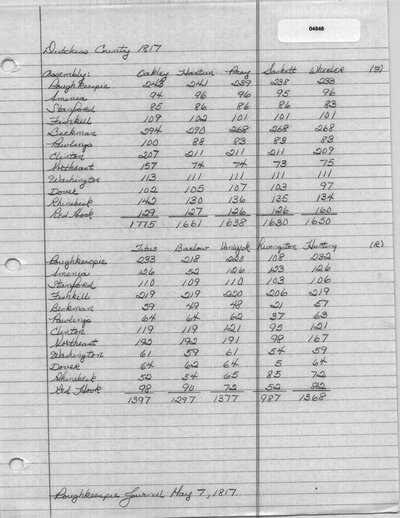 04546
Dutchess County 1817
Assembly: Oakley Hasbin Pray Sackett Wheeler (B)
Poughkeepsie 243 241 239 238 233
Amenia 94 96 96 95 96
Stanford 85 86 86 86 83
Fishkill 109 102 101 101 101
Beekman 294 290 268 268 268
Pawlings 100 88 83 83 83
Clinton 207 211 211 211 209
Northeast 157 74 74 73 75
Washington 113 111 111 111 111
Dover 102 105 107 103 97
Rhinebeck 142 130 136 135 134
Red Hook 129 127 126 126 160
1775 1661 1638 1630 1650
Titus Barlow Vanwyck Livingston Hunting (R)
Poughkeepsie 233 218 220 108 232
Amenia 126 52 126 123 126
Stanford 110 109 110 103 106
Fishkill 219 219 220 206 219
Beekman 59 49 48 21 57
Pawlings 64 64 62 37 63
Clinton 119 119 121 95 121
Northeast 192 192 191 98 167
Washington 61 59 61 54 59
Dover 64 62 64 5 64
Rhinebeck 52 54 65 85 72
Red Hook 98 90 72 52 82
1397 1297 1377 987 1368
Poughkeepsie Journal, May 7, 1817.